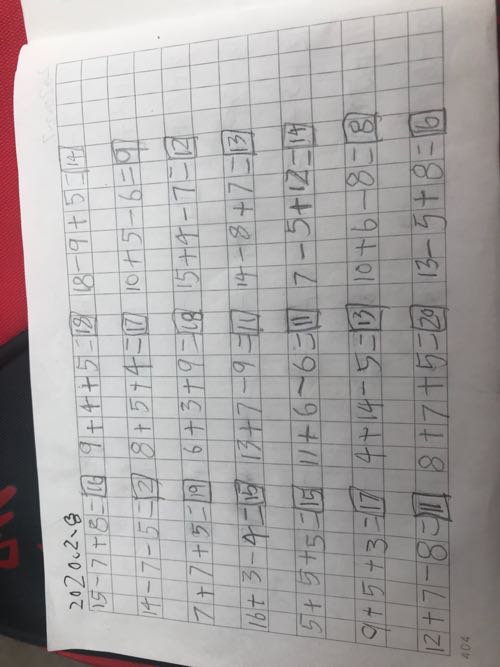 2020.2.8
15-7+8=16 9+4+5=18 18-9+5=14
14-7-5=2 8+5+4=17 10+5-6=9
7+7+5=19 6+3+9=18 15+4-7=12
16+3-4=15 13+7-9=11 14-8+7=13
5+5+5=15 11+6-6=11 7-5+12=14
9+5+3=17 4+14-5=13 10+6-8=8
12+7-8=11 8+7+5=20 13-5+8=16
404